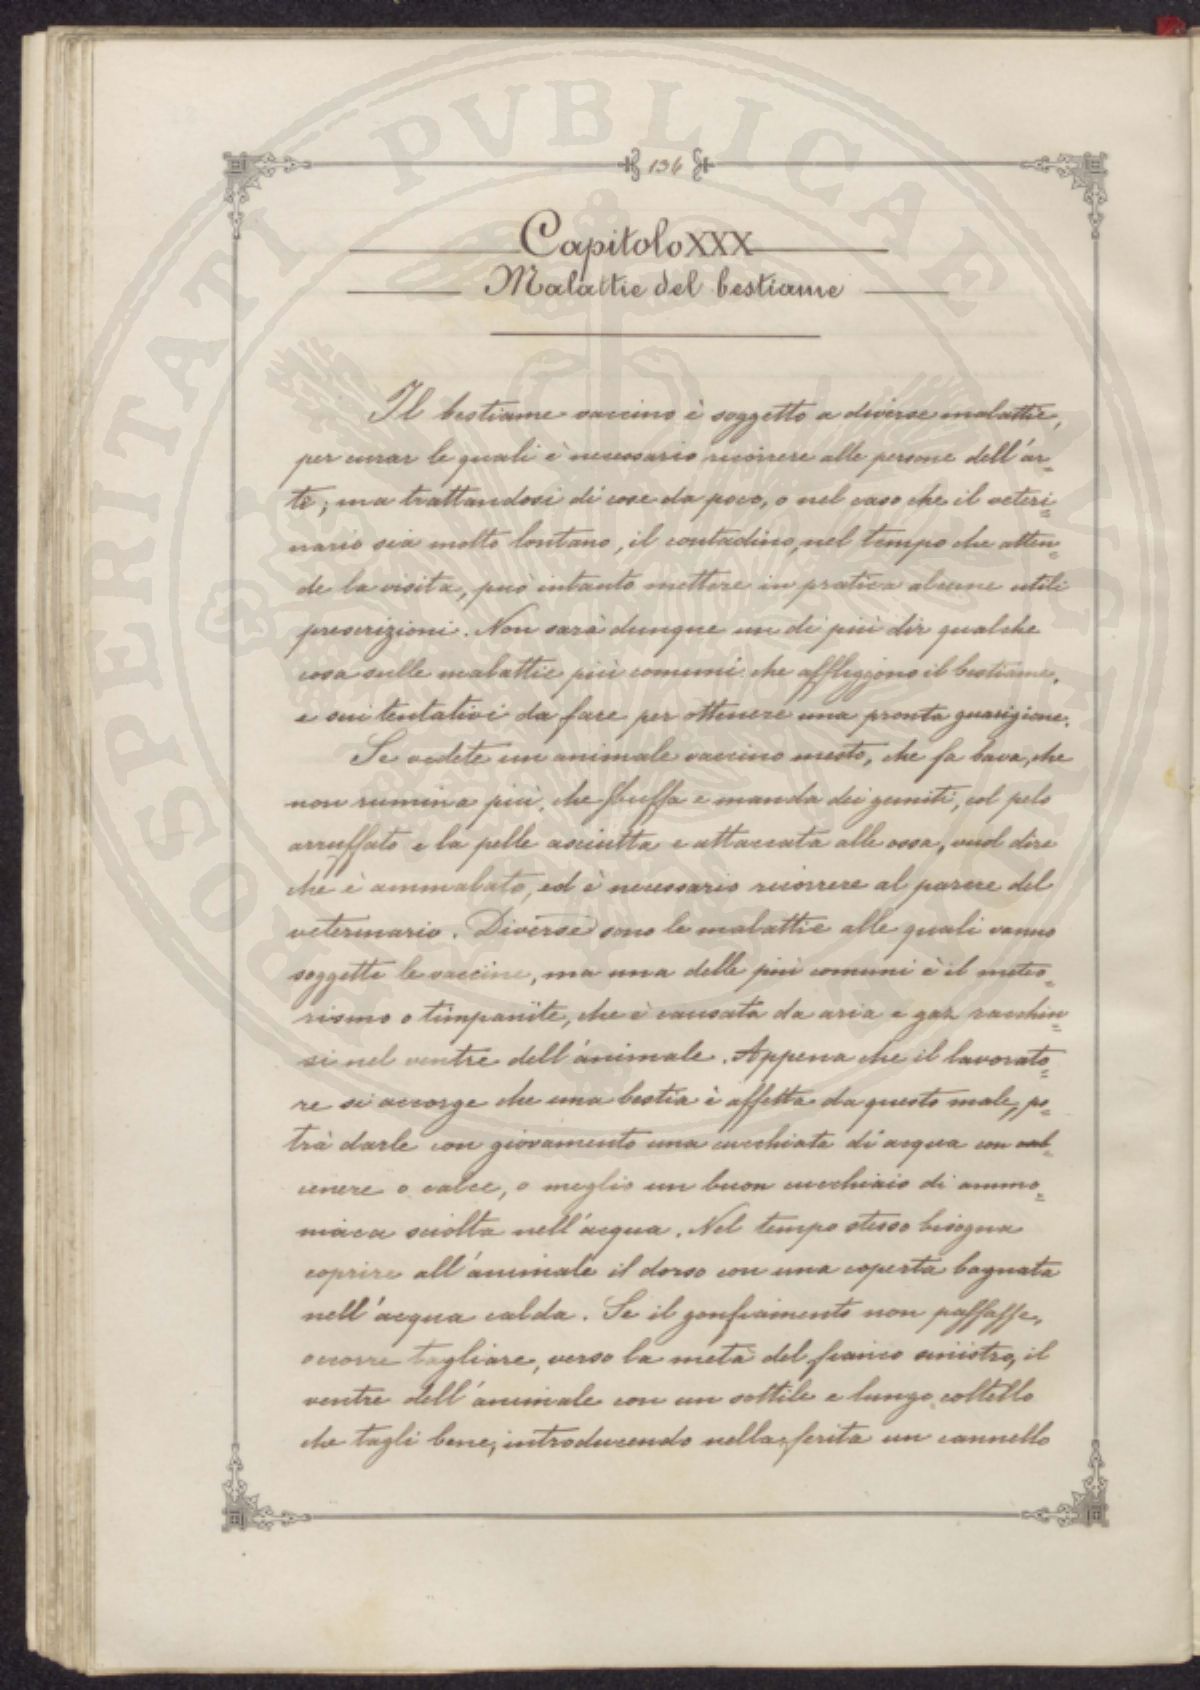 136
Capitolo XXX
Malattie del bestiame
Il bestiame vaccino è soggetto a diverse malattie,
per curar le quali è necessario ricorrere alle persone dell'ar=
te; ma trattandosi di cose da poco, o nel caso che il veteri=
nario sia molto lontano, il contadino, nel tempo che atten=
de la visita, può intanto mettere in pratica alcune utili
prescrizioni. Non sarà dunque un di più dir qualche
cosa sulle malattie più comuni che affliggono il bestiame,
e sui tentativi da fare per ottenere una pronta guarigione.
Se vedete un animale vaccino mesto, che fa bava, che
non rumina più, che sbuffa e manda dei gemiti, col pelo
arruffato e la pelle asciutta e attaccata alle ossa, vuol dire
che è ammalato, ed è necessario ricorrere al parere del
veterinario. Diverse sono le malattie alle quali vanno
soggette le vaccine, ma una delle più comuni è il meteo=
rismo o timpanite, che è causata da aria e gaz racchiu=
si nel ventre dell'animale. Appena che il lavorato=
re si accorge che una bestia è affetta da questo male, po=
trà darle con giovamento una cucchiata di acqua con
cenere o calce, o meglio un buon cucchiaio di ammo=
niaca sciolta nell'acqua. Nel tempo stesso bisogna
coprire all'animale il dorso con una coperta bagnata
nell'acqua calda. Se il gonfiamento non passasse,
occorre tagliare, verso la metà del fianco sinistro, il
ventre dell'animale con un sottile e lungo coltello
che tagli bene, introducendo nella ferita un cannello
PROSPERITATI PVBLICAE AVGENDAE